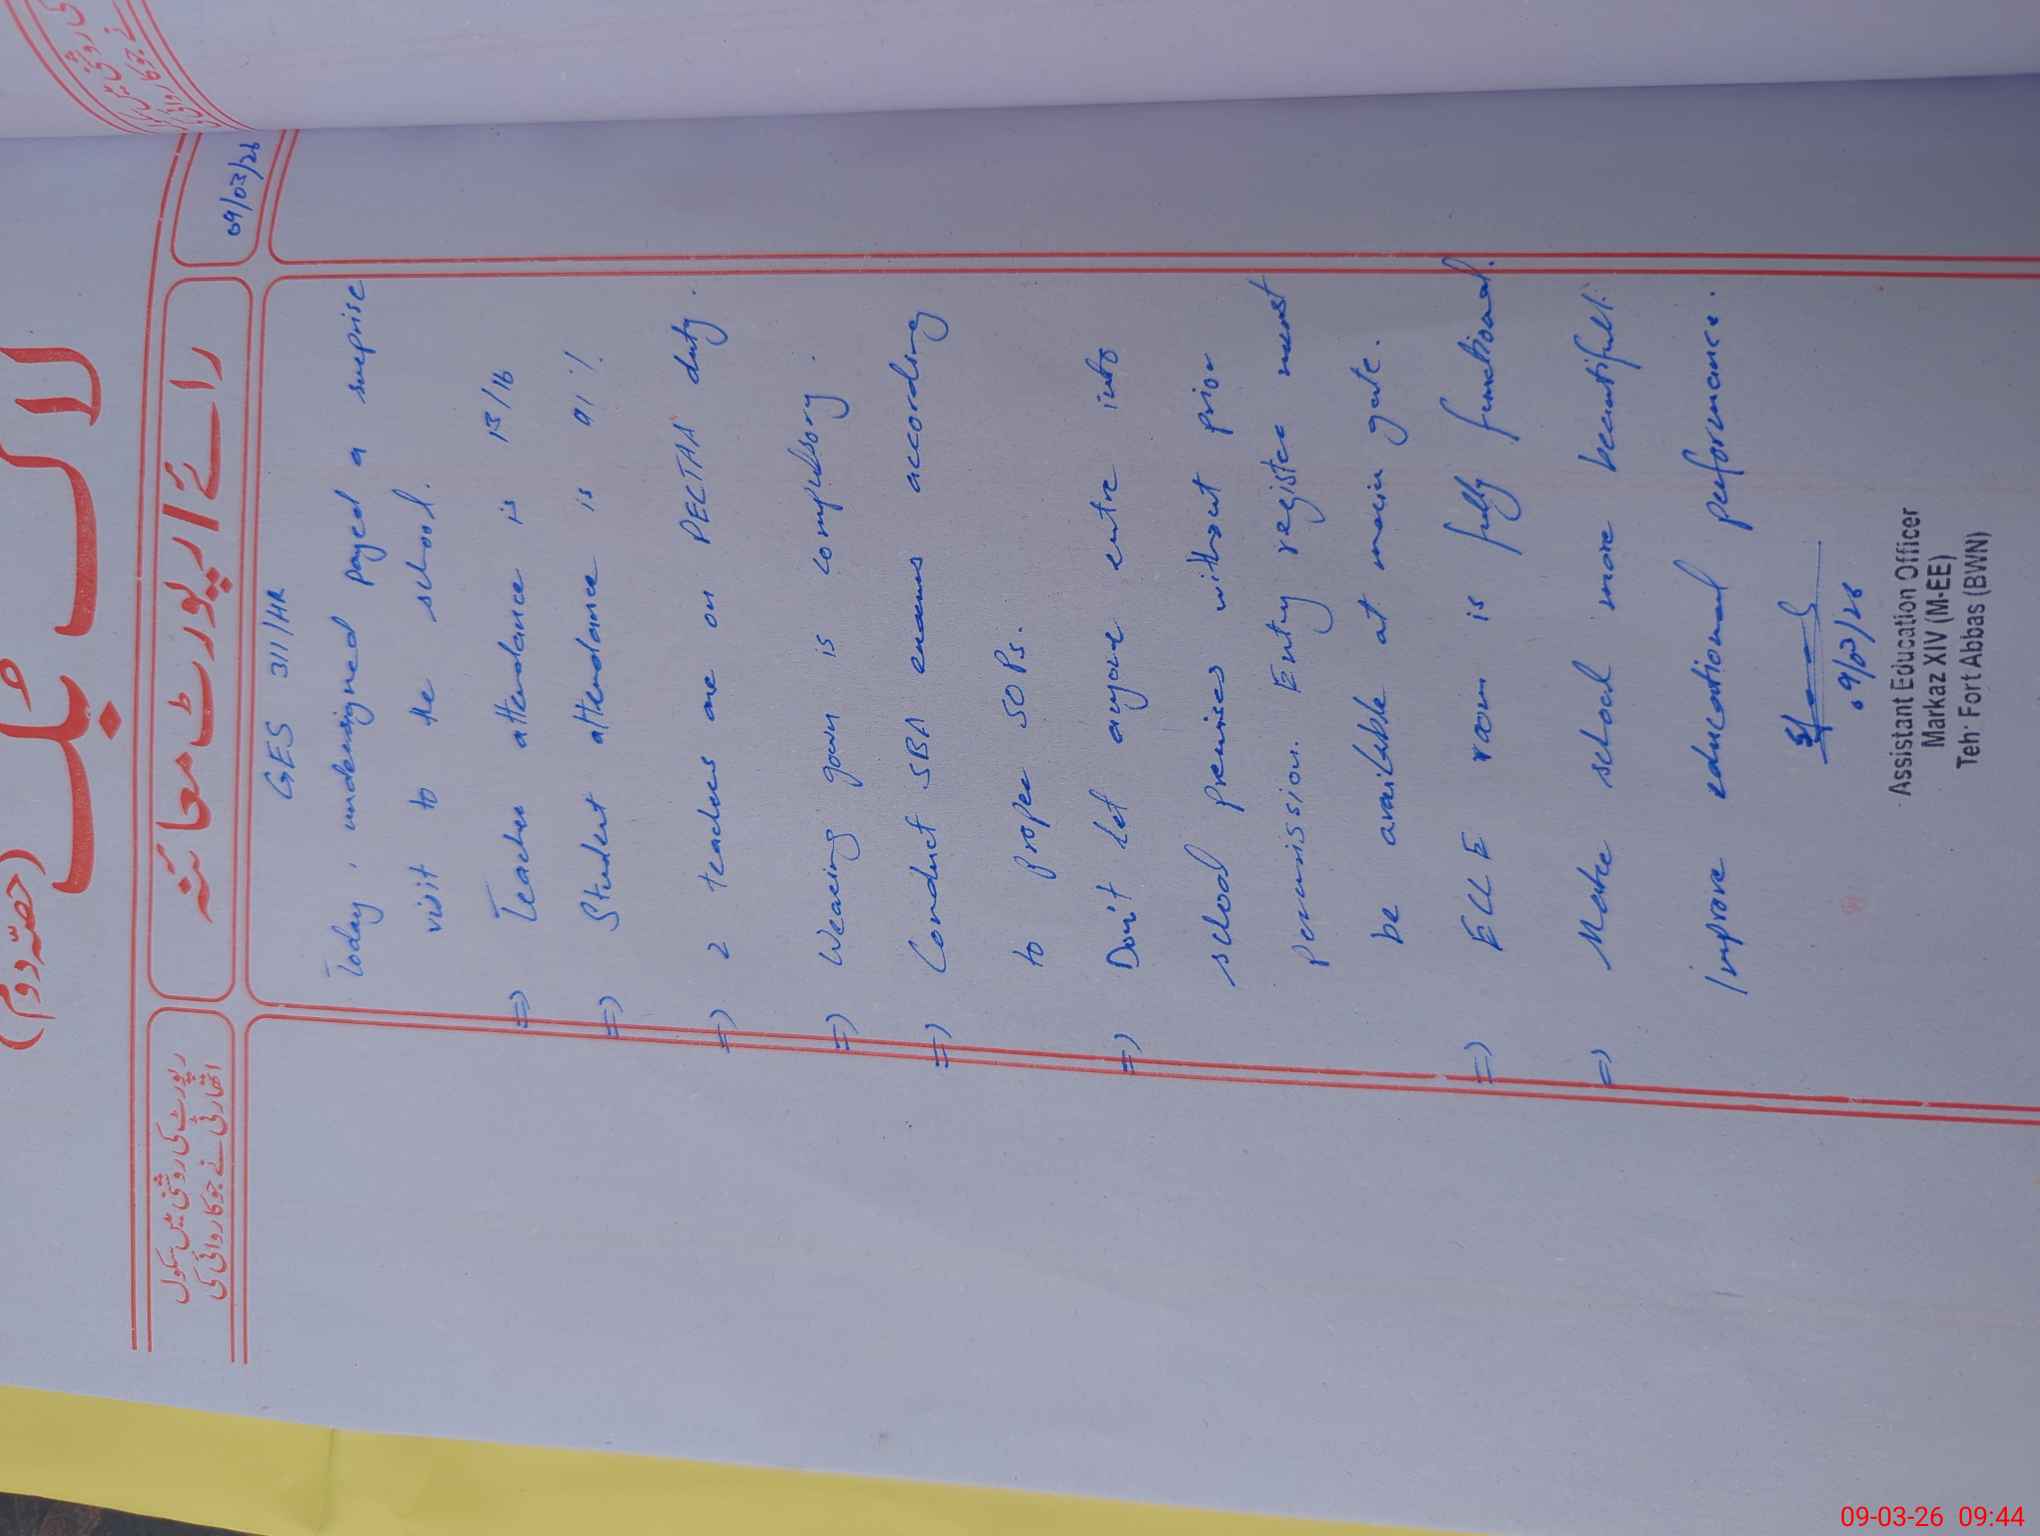 لاگ بُک
(حصّہ دوم)
رائے / رپورٹ معائنہ
رپورٹ کی روشنی میں سکول
اتھارٹی نے جو کاروائی کی
09/03/26
GES 311/HR
Today, undersigned payed a surprise
visit to the school.
=) Teacher attendance is 13/16
=) Student attendance is 91%
=) 2 teachers are on PECTAA duty.
=) Wearing gown is compulsory.
=) Conduct SBA exams according
to proper SOPs.
=) Don't let anyone entre into
school premises without prior
permission. Entry register must
be available at main gate.
=) ECCE room is fully functional.
=) Make school more beautiful.
Improve educational performance.
09/03/26
Assistant Education Officer
Markaz XIV (M-EE)
Teh: Fort Abbas (BWN)
09-03-26 09:44